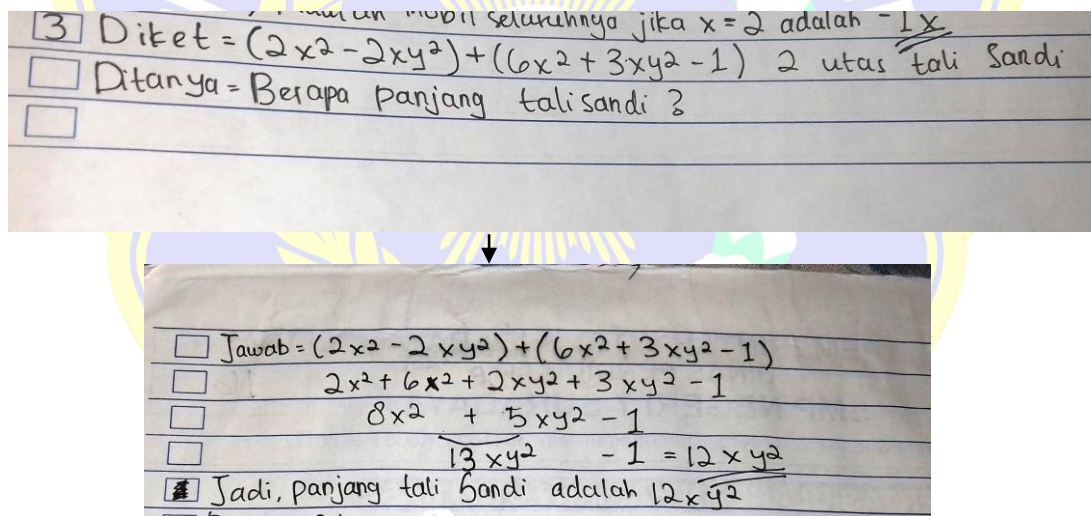 mobil seluruhnya jika x = 2 adalah - 1x
3 Diket = (2x² - 2xy²) + (6x² + 3xy² - 1) 2 utas tali Sandi
Ditanya = Berapa panjang tali sandi ?
Jawab = (2x² - 2xy²) + (6x² + 3xy² - 1)
2x² + 6x² + 2xy² + 3xy² - 1
8x² + 5xy² - 1
13xy² - 1 = 12xy²
Jadi, panjang tali Sandi adalah 12xy²